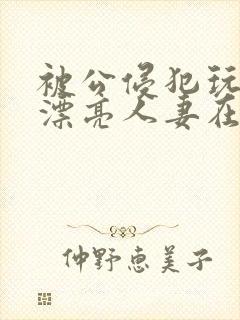 被公侵犯玩
漂亮人妻在
仲野恵美子